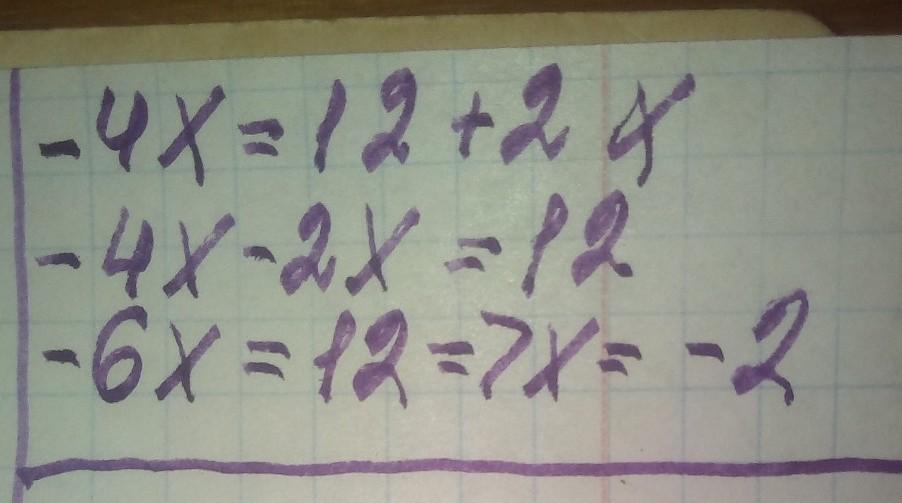 -4x = 12 + 2x
-4x - 2x = 12
-6x = 12 => x = -2